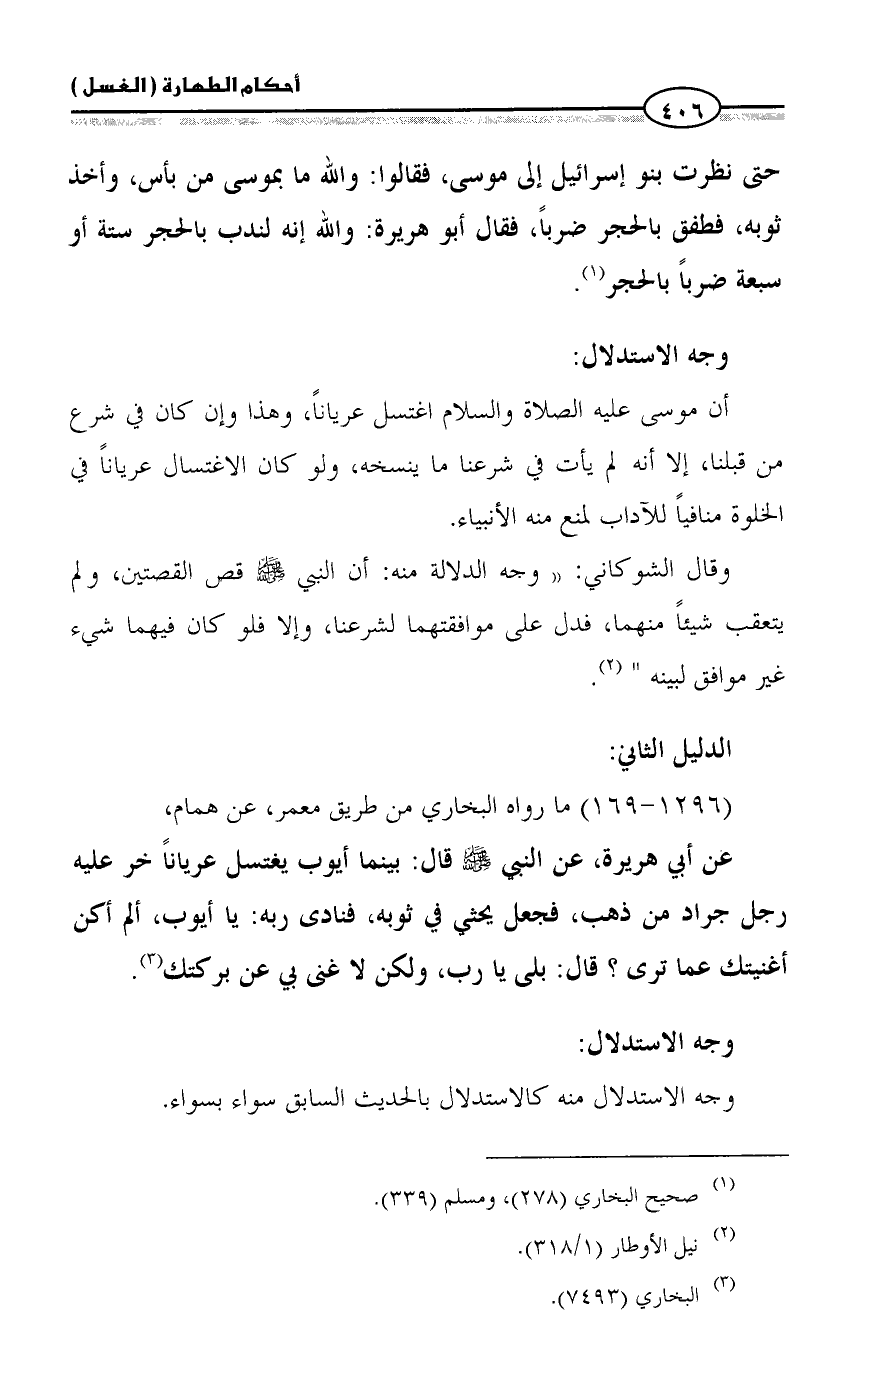 أحكام الطهارة (الغسل)
٤٠٦
حتى نظرت بنو إسرائيل إلى موسى، فقالوا: والله ما بموسى من بأس، وأخذ
ثوبه، فطفق بالحجر ضرباً، فقال أبو هريرة: والله إنه لندب بالحجر ستة أو
سبعة ضرباً بالحجر(١).
وجه الاستدلال:
أن موسى عليه الصلاة والسلام اغتسل عرياناً، وهذا وإن كان في شرع
من قبلنا، إلا أنه لم يأت في شرعنا ما ينسخه، ولو كان الاغتسال عرياناً في
الخلوة منافياً للآداب لمنع منه الأنبياء.
وقال الشوكاني: (( وجه الدلالة منه: أن النبي ﷺ قص القصتين، ولم
يتعقب شيئاً منهما، فدل على موافقتهما لشرعنا، وإلا فلو كان فيهما شيء
غير موافق لبينه " (٢).
الدليل الثاني:
(١٢٩٦-١٦٩) ما رواه البخاري من طريق معمر، عن همام،
عن أبي هريرة، عن النبي ﷺ قال: بينما أيوب يغتسل عرياناً خر عليه
رجل جراد من ذهب، فجعل يحثي في ثوبه، فنادى ربه: يا أيوب، ألم أكن
أغنيتك عما ترى ؟ قال: بلى يا رب، ولكن لا غنى بي عن بركتك(٣).
وجه الاستدلال:
وجه الاستدلال منه كالاستدلال بالحديث السابق سواء بسواء.
(١) صحيح البخاري (٢٧٨)، ومسلم (٣٣٩).
(٢) نيل الأوطار (٣١٨/١).
(٣) البخاري (٧٤٩٣).